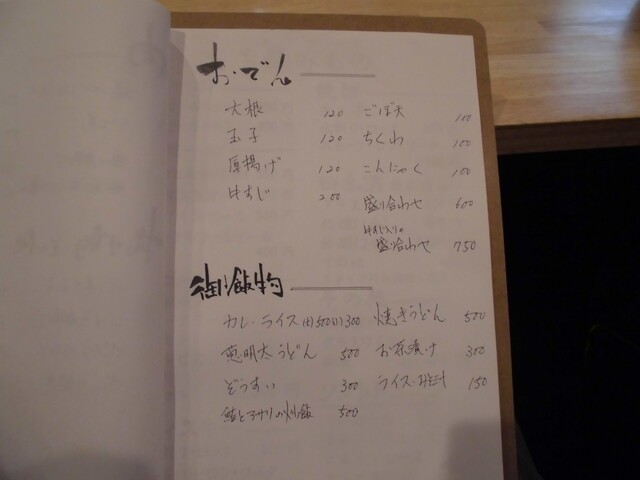 おでん
大根 120
玉子 120
厚揚げ 120
牛すじ 200
ごぼ天 100
ちくわ 100
こんにゃく 100
盛り合わせ 600
牛すじ入りの
盛り合わせ 750
御飯物
カレーライス (大)500(小)300
葱明太うどん 500
ぞうすい 300
鮭とアサリの炒飯 500
焼きうどん 500
お茶漬け 300
ライス・お味汁 150